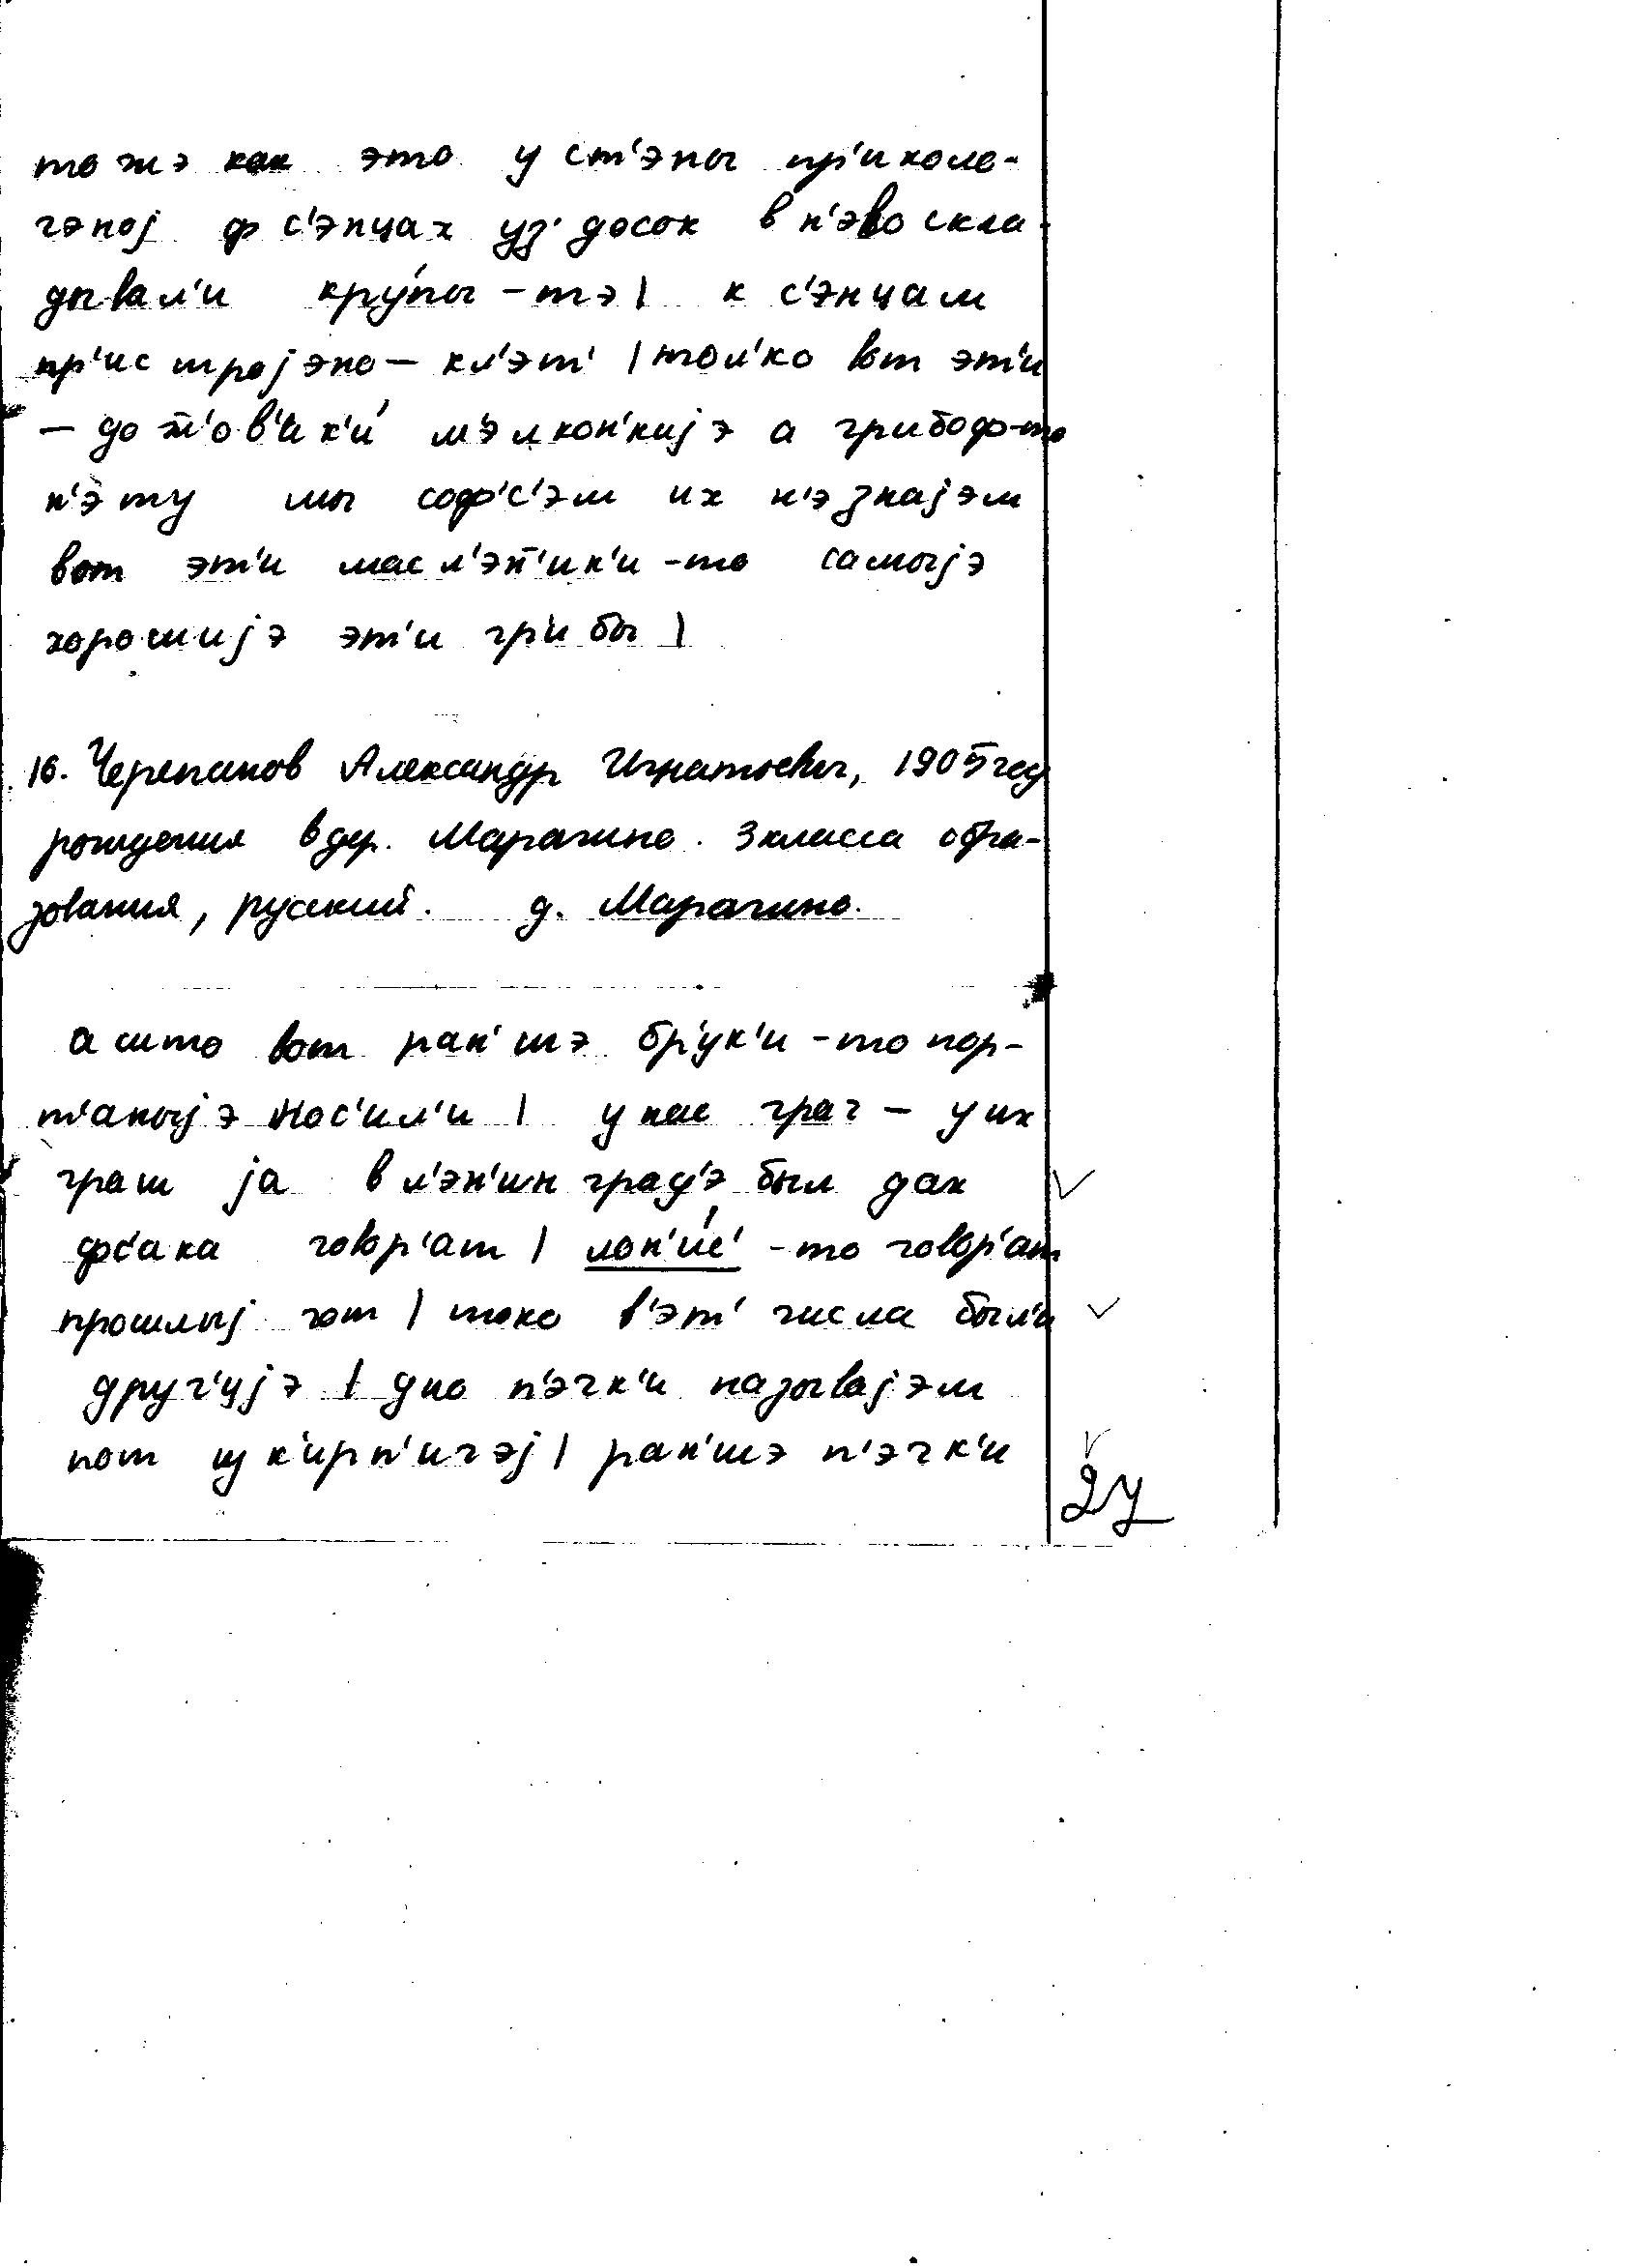 тожэ как это у ст'эны пр'иколо-
чэној ф с'энцах уз' досок в н'эво скла-
дывал'и кру́пы-тэ | к с'энцам
пр'истројэно – кл'эт' | тол'ко вот эт'и
– м'элкон'кијэ а грибоф-то
н'эту мы соф'с'эм их н'э знајэм
вот эт'и масл'эн̄'ик'и-то самыјэ
хорошијэ эт'и гр'ибы |
16. Черепанов Александр Игнатьевич, 1905 год
рождения в дер. Марачино. 3 класса обра-
зования, русский. д. Марачино.
а што вот ран'шэ бр'ук'и-то пор-
т'аныјэ нос'ил'и | у нас грач – у их
граш ја в л'эн'инград'э был дак
фс'ака говор'ат | лон'и́с' -то говор'ат
прошлыј гот | токо в'эт' числа был'и
друг'ијэ | дно п'эчк'и называјэм
пот из к'ирп'ичэј | ран'шэ п'эчк'и